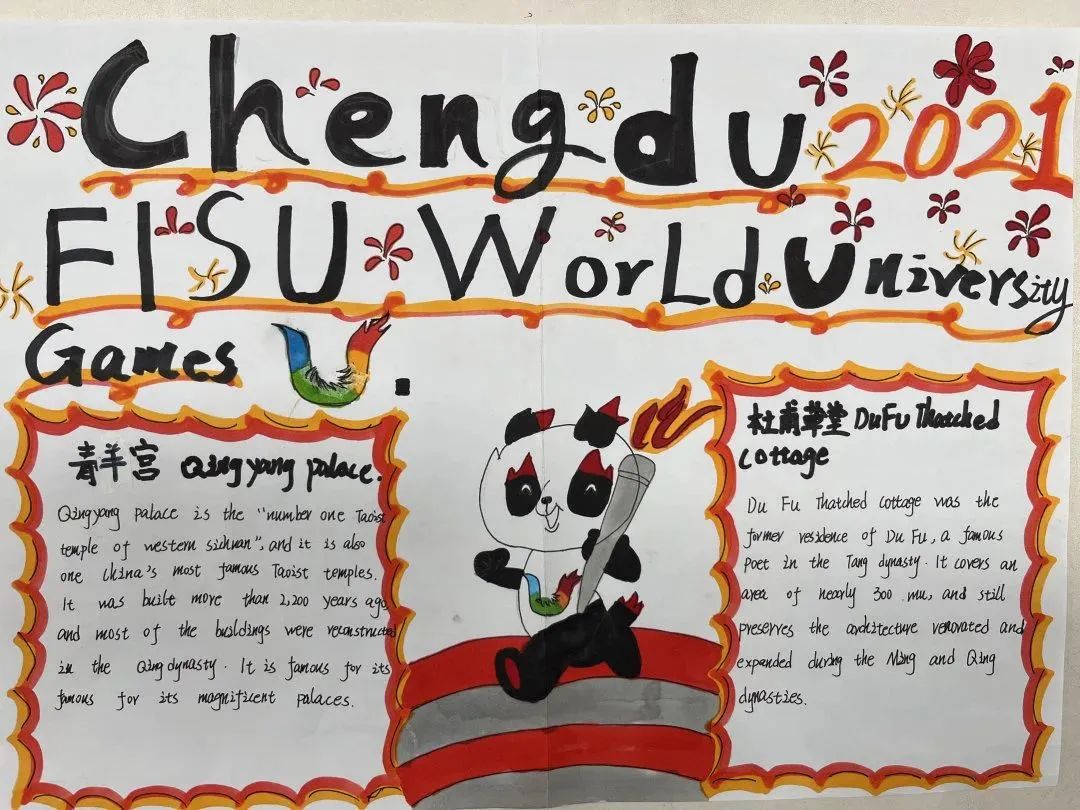 Chengdu 2021
FISU World University
Games
青羊宫 Qingyang palace.
Qingyang palace is the "number one Taoist
temple of western sichuan", and it is also
one China's most famous Taoist temples.
It was built more than 2,200 years ago,
and most of the buildings were reconstructed
in the Qing dynasty. It is famous for its
famous for its magnificent palaces.
杜甫草堂 DuFu Thatched
cottage
Du Fu Thatched cottage was the
former residence of Du Fu, a famous
Poet in the Tang dynasty. It covers an
area of nearly 300 mu, and still
preserves the architecture renovated and
expended during the Ming and Qing
dynasties.